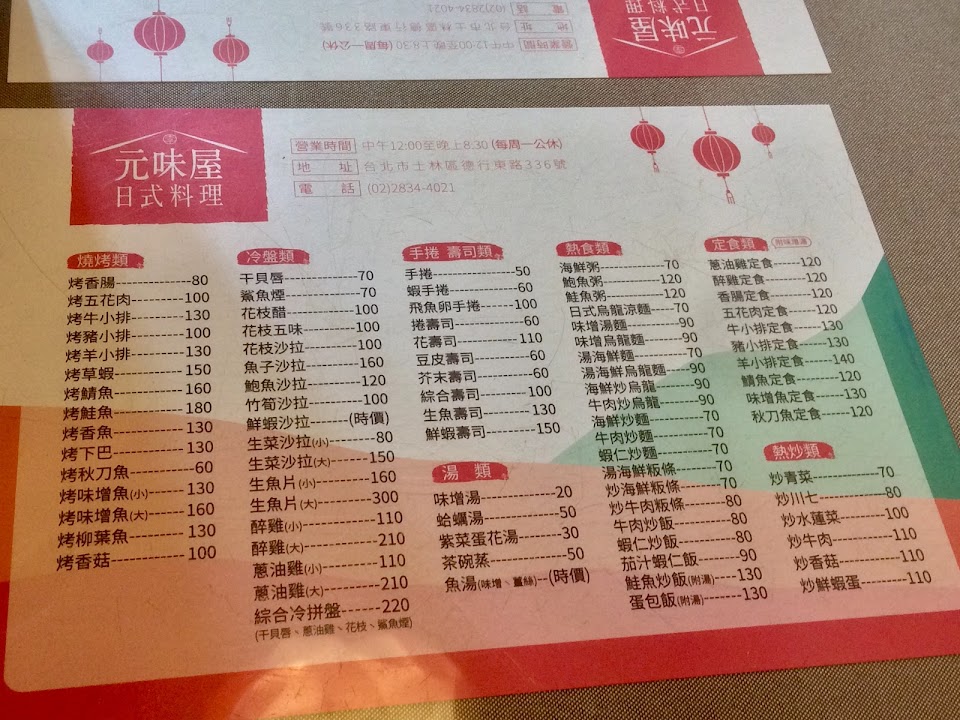 電 話 (02)2834-4021
地 址 台北市士林區德行東路336號
營業時間 中午12:00至晚上8:30 (每周一公休)
元味屋
日式料理
元味屋
日式料理
營業時間 中午12:00至晚上8:30 (每周一公休)
地 址 台北市士林區德行東路336號
電 話 (02)2834-4021
燒烤類
烤香腸------------80
烤五花肉----------100
烤牛小排----------130
烤豬小排----------100
烤羊小排----------130
烤草蝦------------150
烤鯖魚------------160
烤鮭魚------------180
烤香魚------------130
烤下巴------------130
烤秋刀魚----------60
烤味增魚(小)------130
烤味增魚(大)------160
烤柳葉魚----------130
烤香菇------------100
冷盤類
干貝唇------------70
鯊魚煙------------70
花枝醋------------100
花枝五味----------100
花枝沙拉----------100
魚子沙拉----------160
鮑魚沙拉----------120
竹筍沙拉----------100
鮮蝦沙拉------(時價)
生菜沙拉(小)------80
生菜沙拉(大)------150
生魚片(小)--------160
生魚片(大)--------300
醉雞(小)----------110
醉雞(大)----------210
蔥油雞(小)--------110
蔥油雞(大)--------210
綜合冷拼盤-------220
(干貝唇、蔥油雞、花枝、鯊魚煙)
手捲 壽司類
手捲--------------50
蝦手捲------------60
飛魚卵手捲------100
捲壽司------------60
花壽司-----------110
豆皮壽司----------60
芥末壽司----------60
綜合壽司---------100
生魚壽司---------130
鮮蝦壽司---------150
湯 類
味增湯------------20
蛤蠣湯------------50
紫菜蛋花湯--------30
茶碗蒸------------50
魚湯(味增、薑絲)--(時價)
熱食類
海鮮粥------------70
鮑魚粥-----------120
鮭魚粥-----------120
日式烏龍涼麵----70
味增湯麵----------90
味增烏龍麵-------90
湯海鮮麵----------70
湯海鮮烏龍麵----90
海鮮炒烏龍-------90
牛肉炒烏龍-------90
海鮮炒麵----------70
牛肉炒麵----------70
蝦仁炒麵----------70
湯海鮮粄條-------70
炒海鮮粄條-------70
炒牛肉粄條-------80
牛肉炒飯----------80
蝦仁炒飯----------80
茄汁蝦仁飯-------90
鮭魚炒飯(附湯)----130
蛋包飯(附湯)------100
定食類 附味增湯
蔥油雞定食------120
醉雞定食---------120
香腸定食---------120
五花肉定食------120
牛小排定食------130
豬小排定食------130
羊小排定食------140
鯖魚定食---------120
味增魚定食------130
秋刀魚定食------120
熱炒類
炒青菜------------70
炒川七------------80
炒水蓮菜--------100
炒牛肉-----------110
炒香菇-----------110
炒鮮蝦蛋--------110